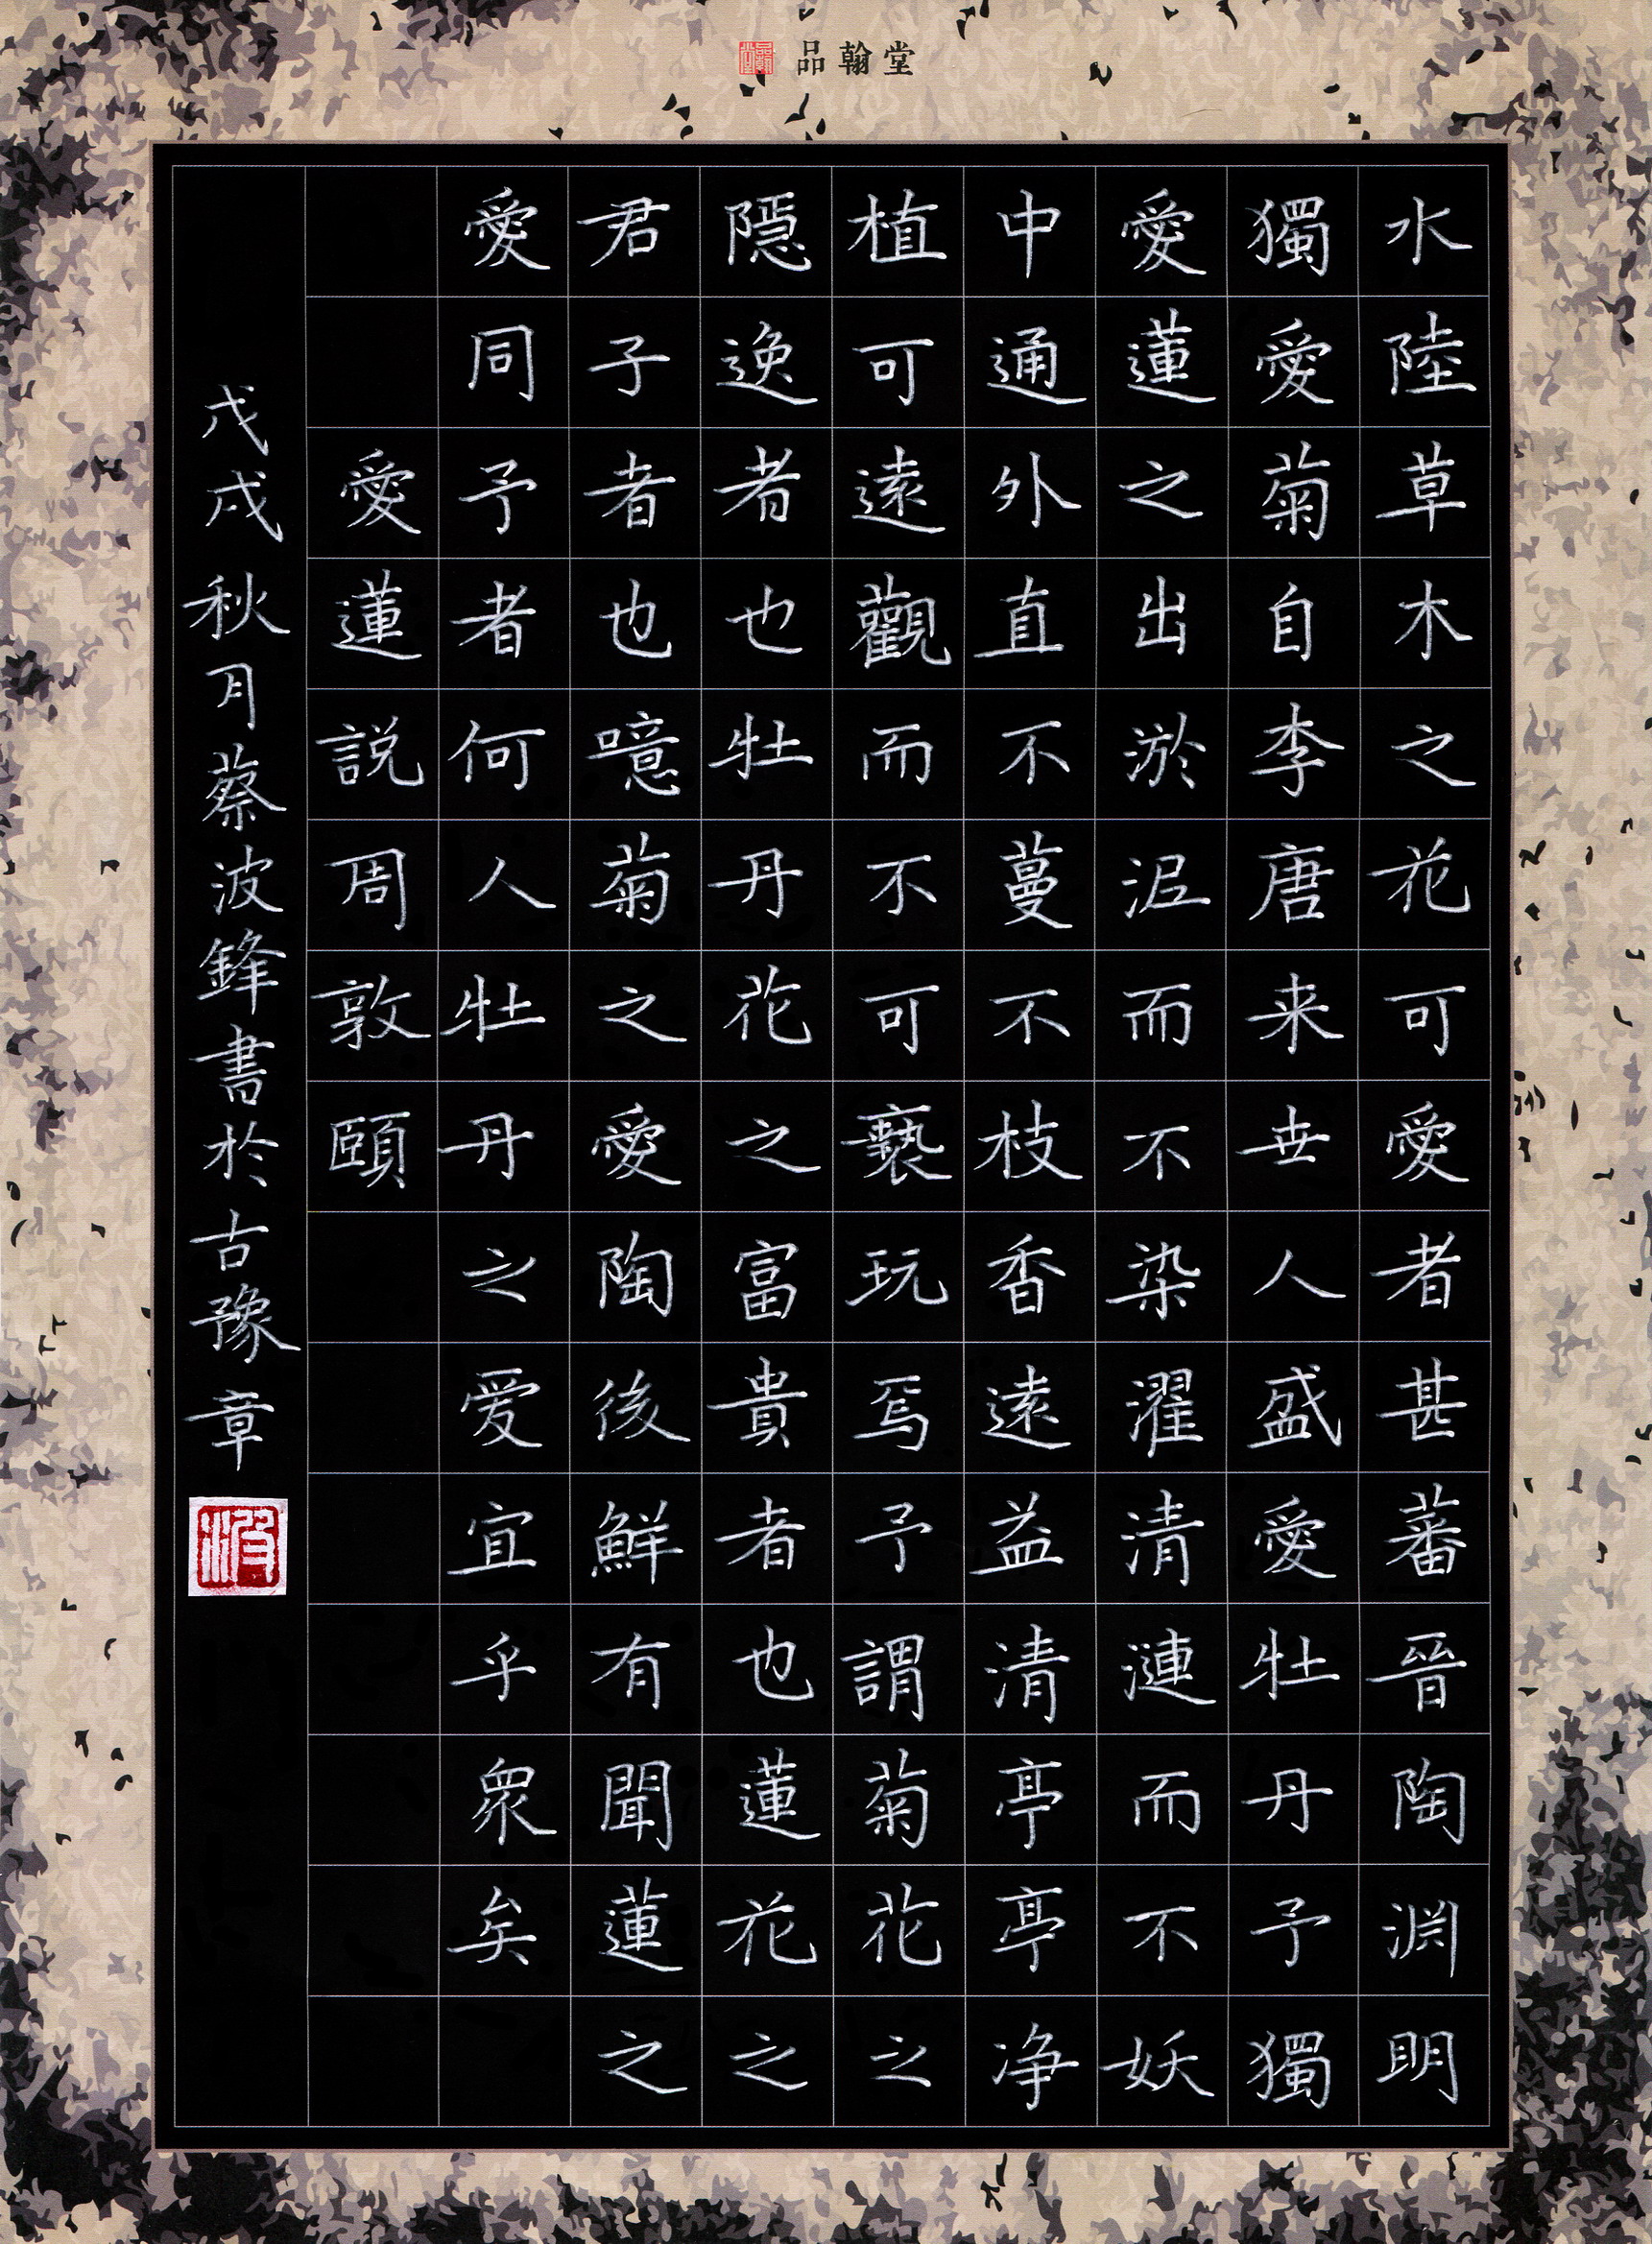 品翰堂
水陸草木之花可愛者甚蕃晉陶淵明
獨愛菊自李唐来世人盛愛牡丹予獨
愛蓮之出淤泥而不染濯清漣而不妖
中通外直不蔓不枝香遠益清亭亭净
植可遠觀而不可褻玩焉予謂菊花之
隱逸者也牡丹花之富貴者也蓮花之
君子者也噫菊之愛陶後鮮有聞蓮之
愛同予者何人牡丹之愛宜乎衆矣
愛蓮説周敦頤
戊戌秋月蔡波鋒書於古豫章
波